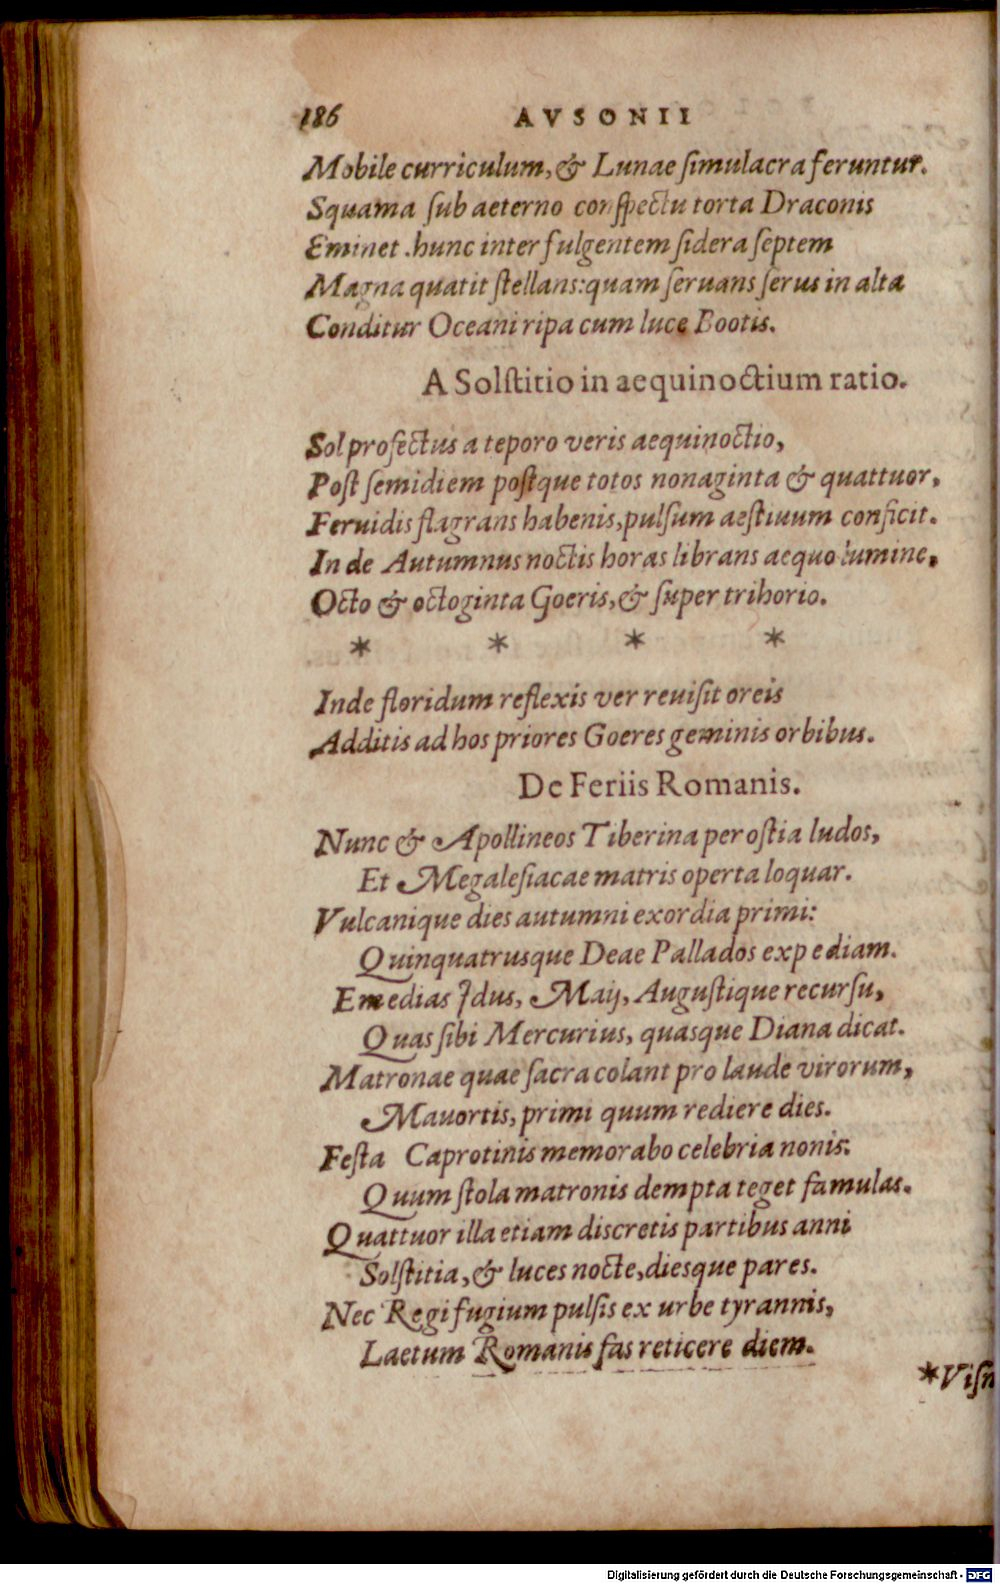 186 AVSONII
Mobile curriculum, & Lunae ſimulacra feruntur.
Squama ſub aeterno conſpectu torta Draconis
Eminet. hunc inter fulgentem ſidera ſeptem
Magna quatit ſtellans: quam ſeruans ſerus in alta
Conditur Oceani ripa cum luce Bootis.
A Solſtitio in aequinoctium ratio.
Sol profectus a teporo veris aequinoctio,
Poſt ſemidiem poſtque totos nonaginta & quattuor,
Feruidis flagrans habenis, pulſum aeſtiuum conficit.
Inde Autumnus noctis horas librans aequo lumine,
Octo & octoginta Goeris, & ſuper trihorio.
* * * *
Inde floridum reflexis ver reuiſit oreis
Additis ad hos priores Goeres geminis orbibus.
De Feriis Romanis.
Nunc & Apollineos Tiberina per oſtia ludos,
Et Megaleſiacae matris operta loquar.
Vulcanique dies autumni exordia primi:
Quinquatrusque Deae Pallados expediam.
Emedias Idus, Maij, Auguſtique recurſu,
Quas ſibi Mercurius, quasque Diana dicat.
Matronae quae ſacra colant pro laude virorum,
Mauortis, primi quum rediere dies.
Feſta Caprotinis memorabo celebria nonis:
Quum ſtola matronis dempta teget famulas.
Quattuor illa etiam discretis partibus anni
Solſtitia, & luces nocte, diesque pares.
Nec Regifugium pulſis ex urbe tyrannis,
Laetum Romanis fas reticere diem.
*Viſn
Digitalisierung gefördert durch die Deutsche Forschungsgemeinschaft - DFG